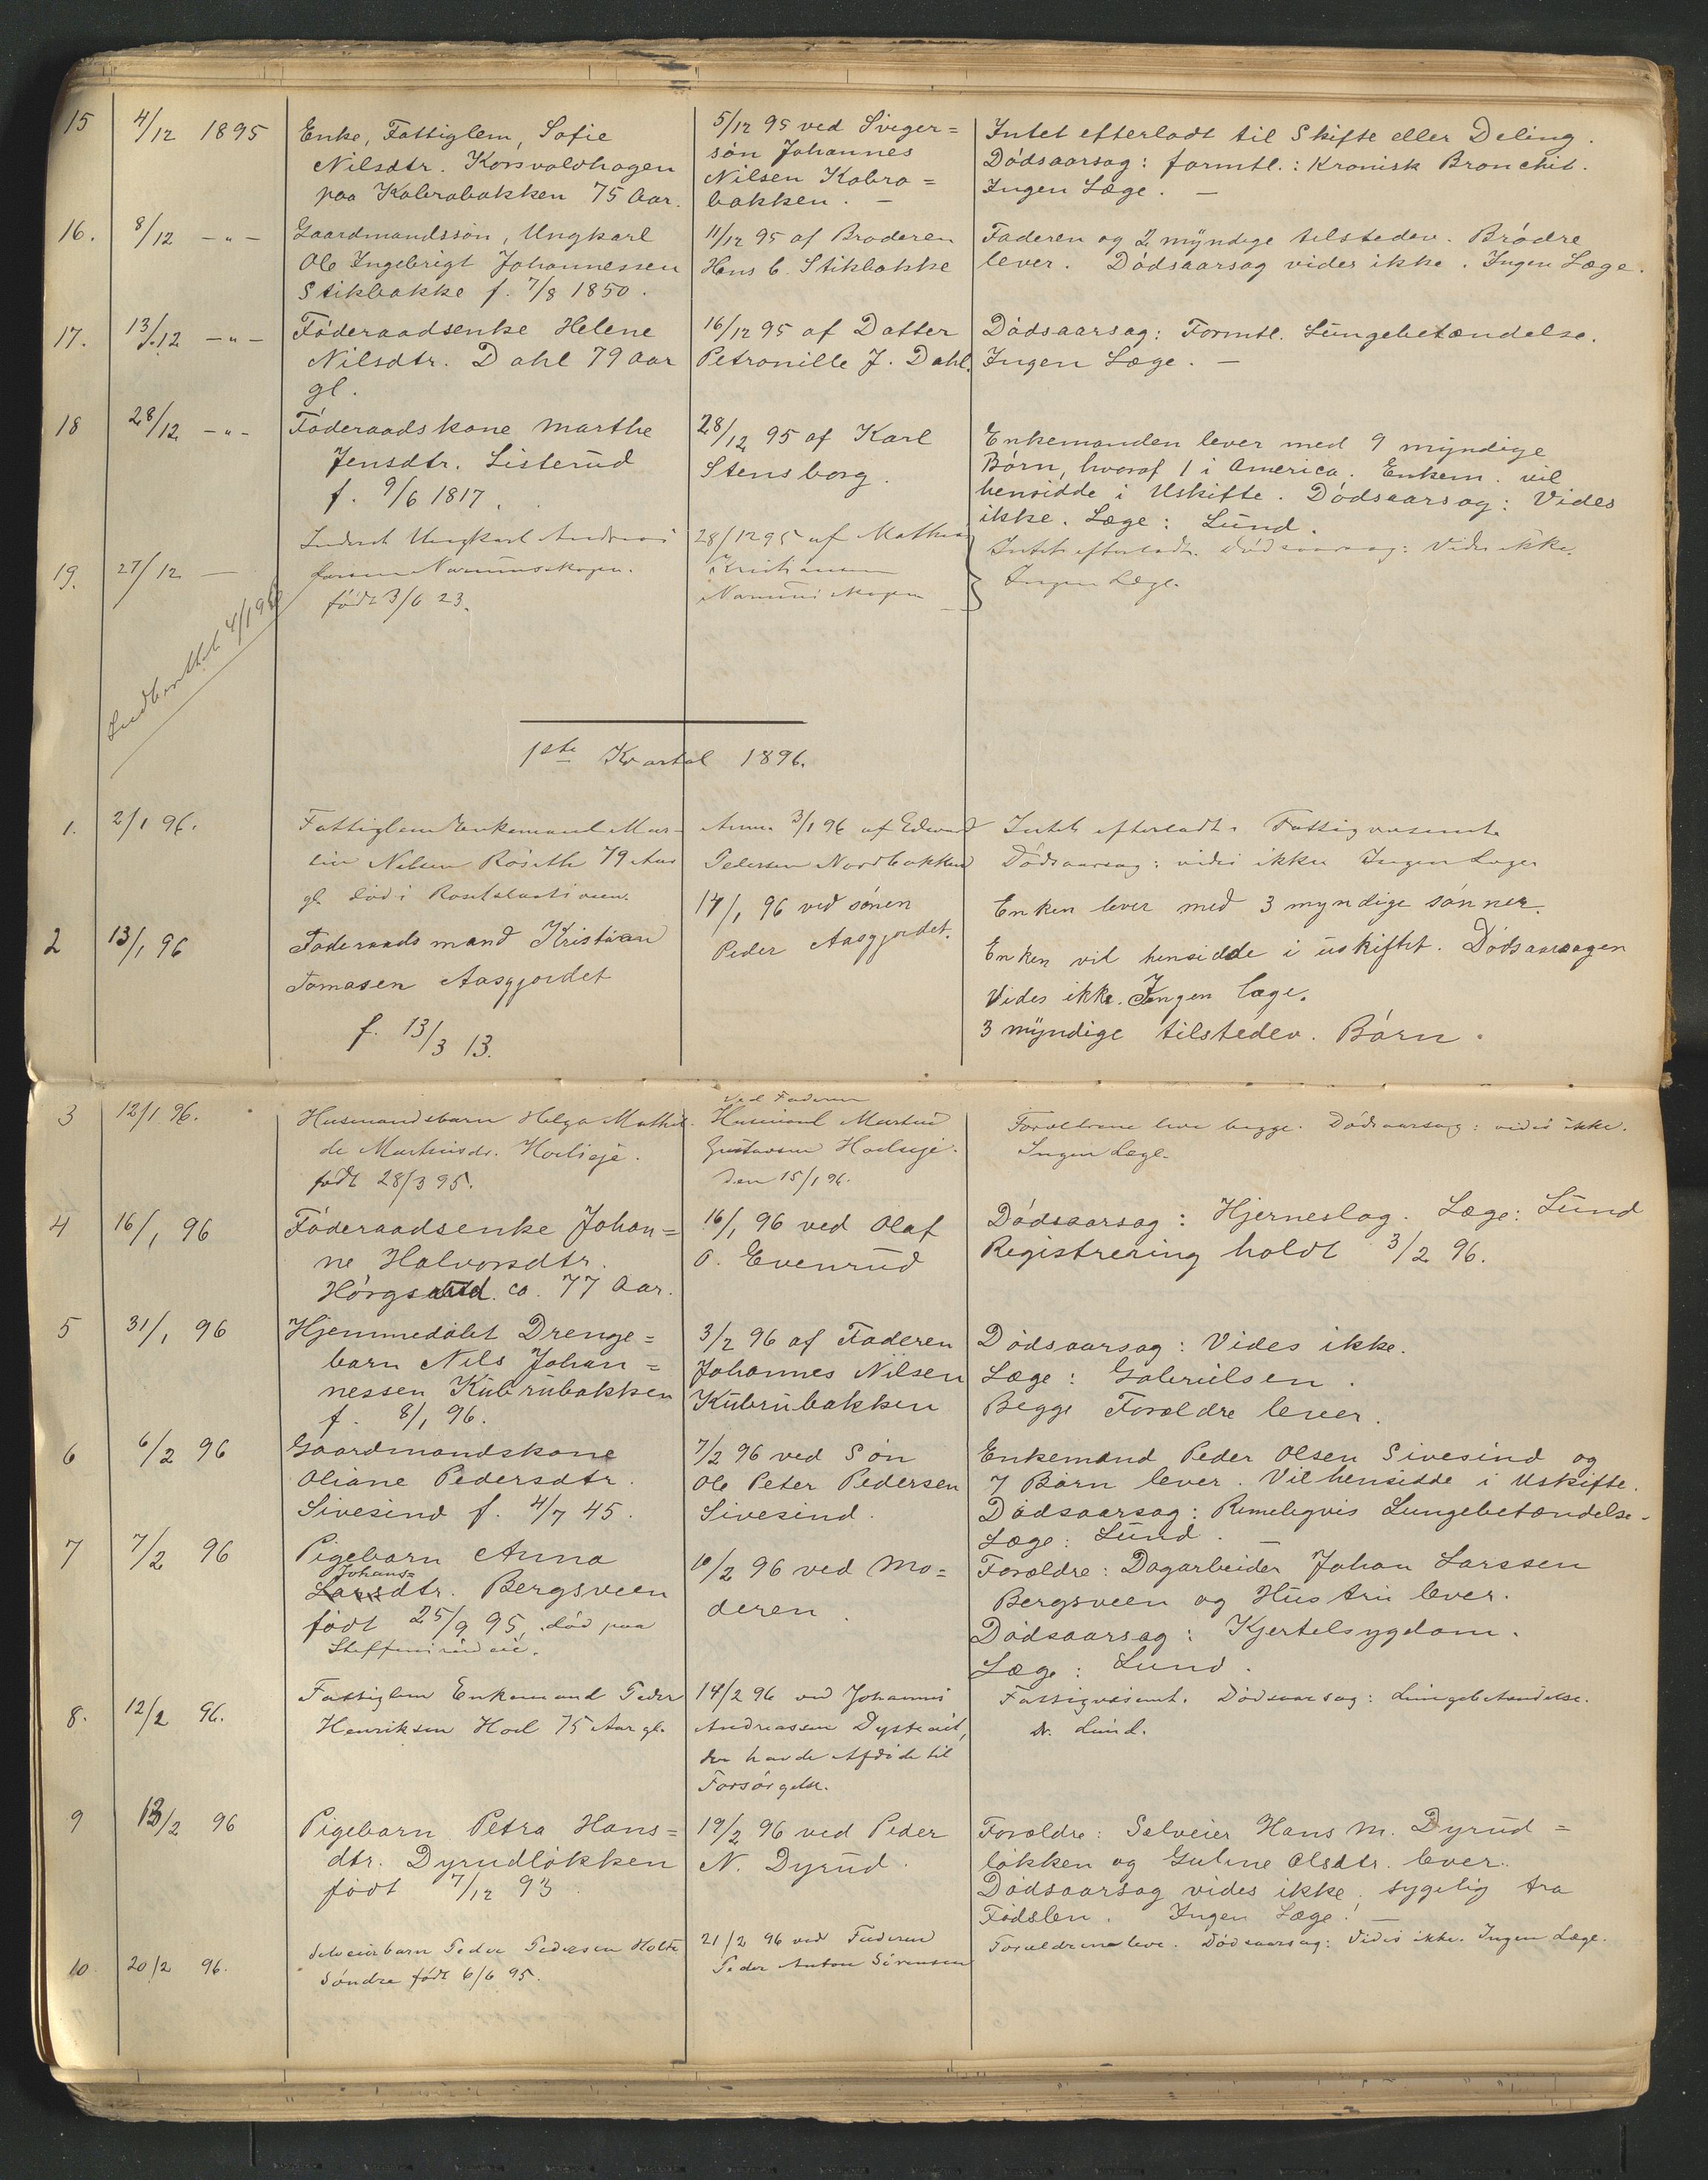 15 4/12 1895 Enke, Fattiglem, Sofie
Nilsdtr. Korsvoldhagen
paa Kabrabakken 75 Aar.
5/12 95 ved Sviger=
søn Johannes
Nilsen Kabra=
bakken. —
Intet efterladt til Skifte eller Deling.
Dødsaarsag: formtl.: Kronisk Bronchit.
Ingen Læge. —
16. 8/12 —"— Gaardmandssøn, Ungkarl
Ole Ingebrigt Johannessen
Stikbakke f. 7/8 1850.
11/12 95 af Broderen
Hans C. Stikbakke
Faderen og 2 myndige tilstedev. Brødre
lever. Dødsaarsag vides ikke. Ingen Læge.
17. 13/12 —"— Føderaadsenke Helene
Nilsdtr. Dahl 79 Aar
gl.
16/12 95 af Datter
Petronille J. Dahl.
Dødsaarsag: Formtl. Lungebetændelse.
Ingen Læge. —
18 28/12 —"— Føderaadskone Marthe
Jensdtr. Listerud
f. 9/6 1817.
28/12 95 af Karl
Stensborg.
Enkemanden lever med 9 myndige
Børn, hvoraf 1 i America. Enkem. vil
hensidde i Uskifte. Dødsaarsag: Vides
ikke. Læge: Lund.
19. 27/12 — Inderst Ungkarl Andreas
født 3/6 23.
28/12 95 af Mathias
Kristiansen
Intet efterladt. Dødsaarsag: Vides ikke.
Ingen Læge.
Indberettet 4/1 96
1ste Kvartal 1896.
1. 2/1 96. Fattiglem Enkemand Mar-
tin Nilsen Røseth 79 Aar
gl. død i
Anm. 3/1 96 af Edvard
Pedersen Nordbakken
Intet efterladt. Fattigvæsenet.
Dødsaarsag: vides ikke Ingen Læge
2 13/1 96 Føderaadsmand Kristian
Tomasen Aasgjordet
f. 13/3 13.
17/1 96 ved sønen
Peder Aasgjordet.
Enken lever med 3 myndige sønner.
Enken vil hensidde i uskiftet. Dødsaarsagen
Vides ikke. Ingen læge.
3 myndige tilstedev. Børn.
3 12/1 96. Husmandsbarn Helga Mathil-
de Martinsdr. Hoelseje.
født 28/3 95.
Ved Faderen
Husmand Martin
Gustavsen Hoelseje.
den 15/1 96.
Forældrene leve begge. Dødsaarsag: vides ikke.
Ingen Læge.
4 16/1 96 Føderaadsenke Johan=
ne Halvorsdtr.
ca. 77 Aar.
16/1 96 ved Olaf
O. Evenrud
Dødsaarsag: Hjerneslag. Læge: Lund
Registrering holdt 3/2 96.
5 31/1 96 Hjemmedøbt Drenge=
barn Nils Johan=
nessen Kubrubakken
f. 8/1 96.
3/2 96 af Faderen
Johannes Nilsen
Kubrubakken
Dødsaarsag: Vides ikke.
Læge: Gabrielsen.
Begge Forældre lever.
6 6/2 96 Gaardmandskone
Oliane Pedersdtr.
Sivesind f. 4/7 45.
7/2 96 ved Søn
Ole Peter Pedersen
Sivesind.
Enkemand Peder Olsen Sivesind og
7 Børn lever. Vil hensidde i Uskifte.
Dødsaarsag: Rimeligvis Lungebetændelse.
Læge: Lund. —
7 7/2 96 Pigebarn Anna
Johans=
Larsdtr. Bergsveen
født 25/9 95, død paa
Steffensrudeie.
10/2 96 ved Mo=
deren.
Forældre: Dagarbeider Johan Larssen
Bergsveen og Hustru lever.
Dødsaarsag: Kjertelsygdom.
Læge: Lund.
8. 12/2 96. Fattiglem Enkemand Peder
Henriksen Hoel 75 Aar gl.
14/2 96 ved Johannes
Andreassen
der havde Afdøde til
Forsørgelse.
Fattigvæsenet. Dødsaarsag: Lungebetændelse.
Dr. Lund.
9 13/2 96 Pigebarn Petra Hans=
dtr. Dyrudløkken
født 7/12 93
19/2 96 ved Peder
N. Dyrud.
Forældre: Selveier Hans M. Dyrud=
løkken og Guline Olsdtr. lever.
Dødsaarsag vides ikke, sygelig fra
Fødslen. Ingen Læge. —
10 20/2 96. Selveierbarn Peder Pedersen Holte
Søndre født 6/6 95.
21/2 96 ved Faderen
Peder Anton Sørensen
Forældrene leve. Dødsaarsag: Vides ikke. Ingen Læge.